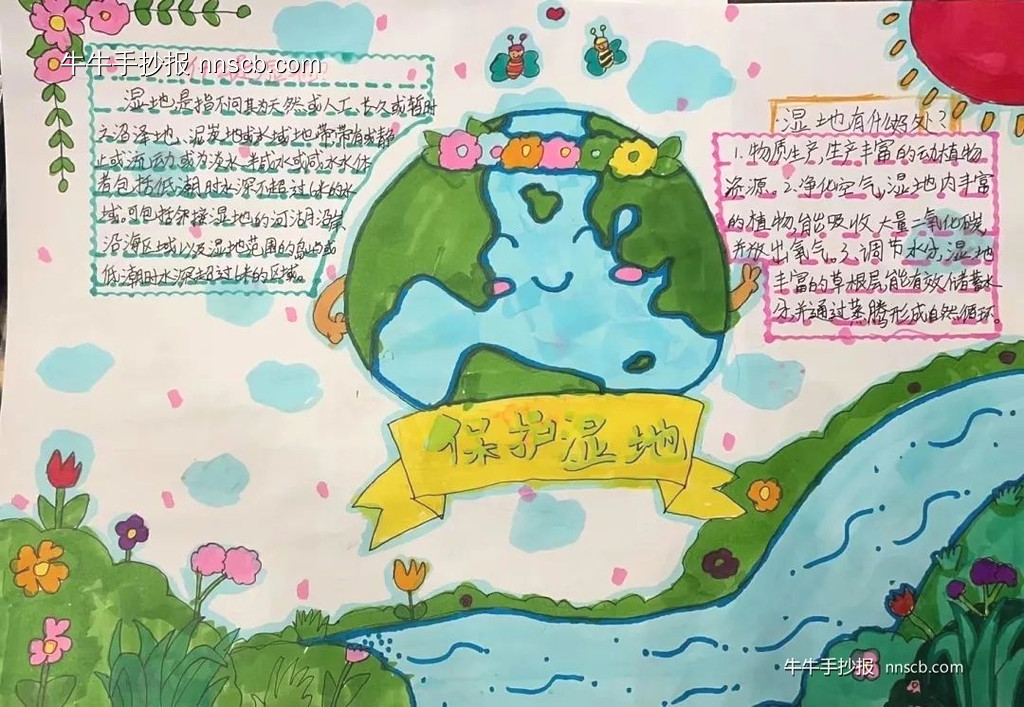 牛牛手抄报 nnscb.com
湿地是指不问其为天然或人工、长久或暂时
之沼泽地、泥炭地或水域地带,带有或静
止或流动,或为淡水、半咸水或咸水水体
者包括低潮时水深不超过6米的水
域。可包括邻接湿地的河湖沿岸
沿海区域以及湿地范围的岛屿或
低潮时水深超过6米的区域。
湿地有什么好处?
1.物质生产,生产丰富的动植物
资源。2.净化空气,湿地内丰富
的植物能吸收大量二氧化碳,
并放出氧气。3.调节水分,湿地
丰富的草根层,能有效储蓄水
分,并通过蒸腾形成自然循环。
保护湿地
牛牛手抄报 nnscb.com